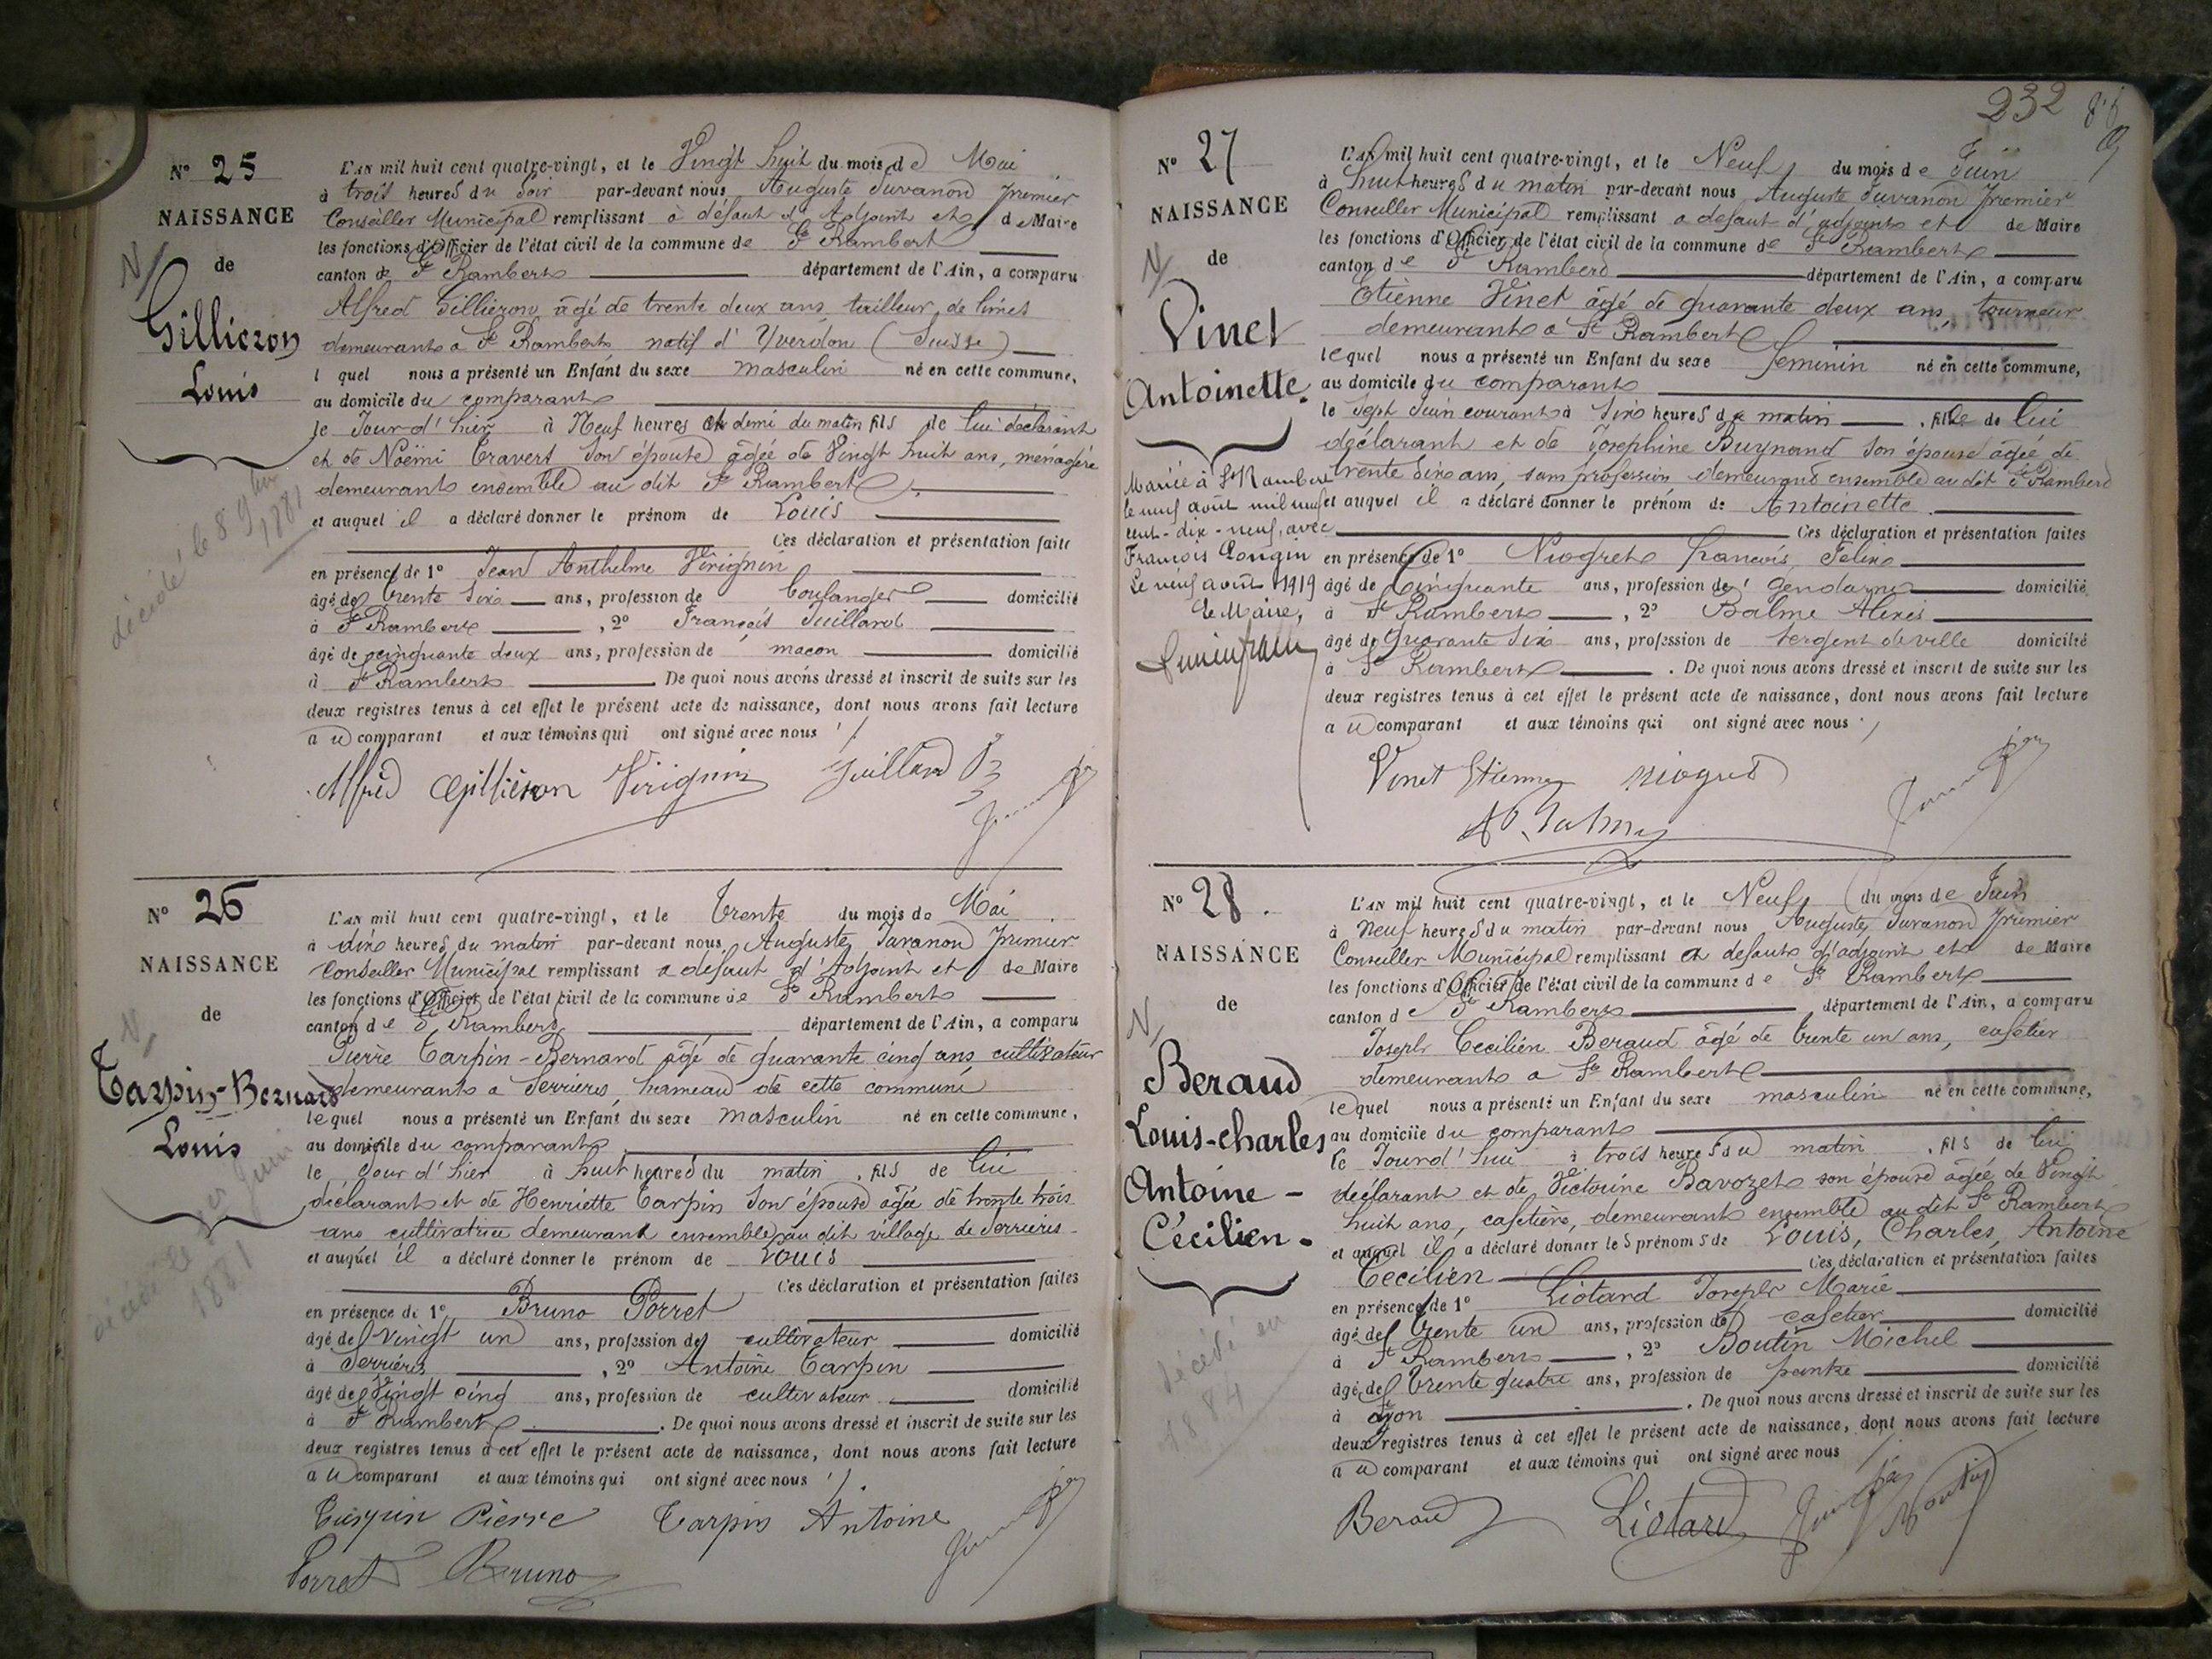 N° 25
NAISSANCE
de
Gillieron
Louis
décédé le 8 9bre
1881
L'AN mil huit cent quatre-vingt, et le Vingt huit du mois de Mai
à trois heures du soir par-devant nous Auguste Juvanon premier
Conseiller Municipal remplissant à défaut d'Adjoint et de Maire
les fonctions d'Officier de l'état civil de la commune de St Rambert
canton de St Rambert département de l'Ain, a comparu
Alfred Gillieron âgé de trente deux ans tailleur de limes
demeurant a St Rambert natif d'Yverdon (Suisse)
l quel nous a présenté un Enfant du sexe masculin né en cette commune,
au domicile du comparant
le Jour d'hier à Neuf heures et demi du matin fils de lui déclarant
et de Noëmi Travers son épouse âgée de Vingt huit ans, ménagère
demeurant ensemble au dit St Rambert
et auquel il a déclaré donner le prénom de Louis
Ces déclaration et présentation faite
en présence de 1° Jean Anthelme Virignin
âgé de trente six ans, profession de boulanger domicilié
à St Rambert, 2° François Juillard
âgé de cinquante deux ans, profession de maçon domicilié
à St Rambert. De quoi nous avons dressé et inscrit de suite sur les
deux registres tenus à cet effet le présent acte de naissance, dont nous avons fait lecture
au comparant et aux témoins qui ont signé avec nous
Alfred Gilliéron Virignin Juillard
N° 26
NAISSANCE
de
Tarpin-Bernard
Louis
décédé le 1er Juin
1881
L'AN mil huit cent quatre-vingt, et le Trente du mois de Mai
à dix heures du matin par-devant nous Auguste Juvanon premier
Conseiller Municipal remplissant a défaut d'Adjoint et de Maire
les fonctions d'Officier de l'état civil de la commune de St Rambert
canton de St Rambert département de l'Ain, a comparu
Pierre Tarpin-Bernard âgé de quarante cinq ans, cultivateur
demeurant a Serrières, hameau de cette commune
lequel nous a présenté un Enfant du sexe masculin né en cette commune,
au domicile du comparant
le Jour d'hier à huit heures du matin, fils de lui
déclarant et de Henriette Tarpin son épouse âgée de trente trois
ans cultivatrice demeurant ensemble au dit village de Serrières
et auquel il a déclaré donner le prénom de Louis
Ces déclaration et présentation faites
en présence de 1° Bruno Porret
âgé de Vingt un ans, profession de cultivateur domicilié
à Serrières, 2° Antoine Tarpin
âgé de Vingt cinq ans, profession de cultivateur domicilié
à St Rambert. De quoi nous avons dressé et inscrit de suite sur les
deux registres tenus à cet effet le présent acte de naissance, dont nous avons fait lecture
au comparant et aux témoins qui ont signé avec nous
Tarpin Pierre Tarpin Antoine
Porret Bruno
232
N° 27
NAISSANCE
de
Vinet
Antoinette
Mariée à St Rambert
le neuf août mil neuf
cent-dix-neuf, avec
François Longin
Le neuf août 1919
Le Maire,
L'AN mil huit cent quatre-vingt, et le Neuf du mois de Juin
à huit heures du matin par-devant nous Auguste Juvanon premier
Conseiller Municipal remplissant a défaut d'adjoint et de Maire
les fonctions d'Officier de l'état civil de la commune de St Rambert
canton de St Rambert département de l'Ain, a comparu
Etienne Vinet âgé de quarante deux ans, tourneur
demeurant a St Rambert
lequel nous a présenté un Enfant du sexe feminin né en cette commune,
au domicile du comparant
le sept Juin courant à six heures du matin, fille de lui
déclarant et de Josephine Buynand son épouse âgée de
trente six ans, sans profession demeurant ensemble au dit St Rambert
et auquel il a déclaré donner le prénom de Antoinette
Ces déclaration et présentation faites
en présence de 1° Niogret francois, Felix
âgé de Cinquante ans, profession de Gendarme domicilié
à St Rambert, 2° Balme Alexis
âgé de quarante six ans, profession de sergent de ville domicilié
à St Rambert. De quoi nous avons dressé et inscrit de suite sur les
deux registres tenus à cet effet le présent acte de naissance, dont nous avons fait lecture
au comparant et aux témoins qui ont signé avec nous
Vinet Etienne Niogret
N° 28.
NAISSANCE
de
Beraud
Louis-charles
Antoine-
Cécilien
décédé en
1884
L'AN mil huit cent quatre-vingt, et le Neuf du mois de Juin
à neuf heures du matin par-devant nous Auguste Juvanon premier
Conseiller Municipal remplissant a defaut d'adjoint et de Maire
les fonctions d'Officier de l'état civil de la commune de St Rambert
canton de St Rambert département de l'Ain, a comparu
Joseph Cecilien Beraud âgé de trente un ans, cafetier
demeurant a St Rambert
lequel nous a présenté un Enfant du sexe masculin né en cette commune,
au domicile du comparant
le Jourd'hui à trois heures du matin, fils de lui
déclarant et de Victorine Bavozet son épouse âgée de Vingt
huit ans, cafetière, demeurant ensemble au dit St Rambert
et auquel il a déclaré donner les prénoms de Louis, Charles, Antoine
Cecilien Ces déclaration et présentation faites
en présence de 1° Liotard Joseph Marie
âgé de trente un ans, profession de cafetier domicilié
à St Rambert, 2° Boutin Michel
âgé de trente quatre ans, profession de peintre domicilié
à Lyon. De quoi nous avons dressé et inscrit de suite sur les
deux registres tenus à cet effet le présent acte de naissance, dont nous avons fait lecture
au comparant et aux témoins qui ont signé avec nous
Beraud Liotard Boutin